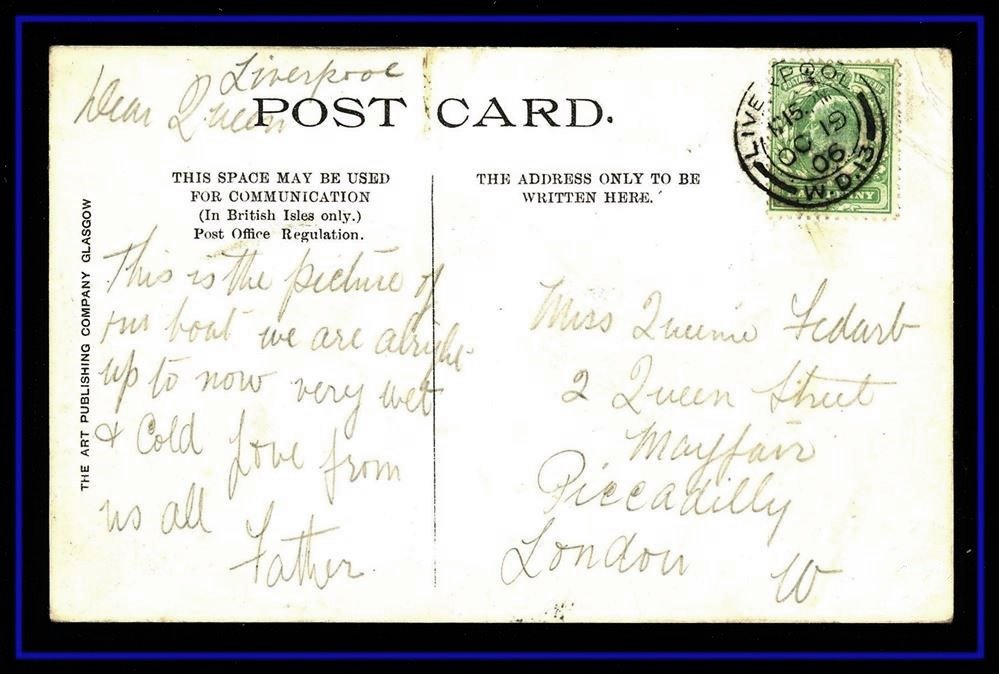 Liverpool
Dear Queen
POST CARD.
THIS SPACE MAY BE USED
FOR COMMUNICATION
(In British Isles only.)
Post Office Regulation.
THE ADDRESS ONLY TO BE
WRITTEN HERE.
THE ART PUBLISHING COMPANY GLASGOW
This is the picture of
our boat we are alright
up to now very wet
& Cold Love from
us all
Father
Miss Queenie Fedarb
2 Queen Street
Mayfair
Piccadilly
London W
LIVERPOOL
OC 19
06
W.D.13
HALFPENNY